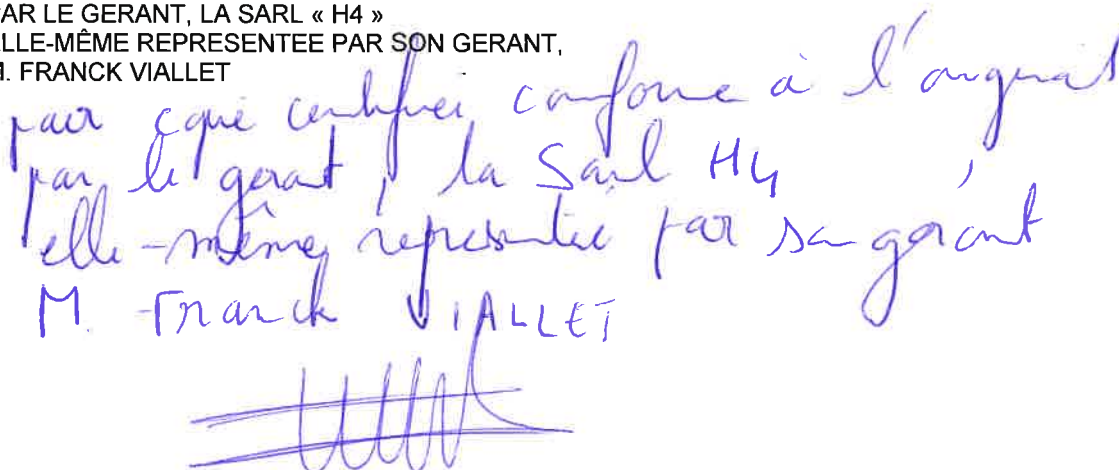 AR LE GERANT, LA SARL « H4 »
LLE-MÊME REPRESENTEE PAR SON GERANT,
M. FRANCK VIALLET
pour copie certifiée conforme à l'original
par le gérant, la Sarl H4
elle-même représentée par son gérant
M. Franck VIALLET